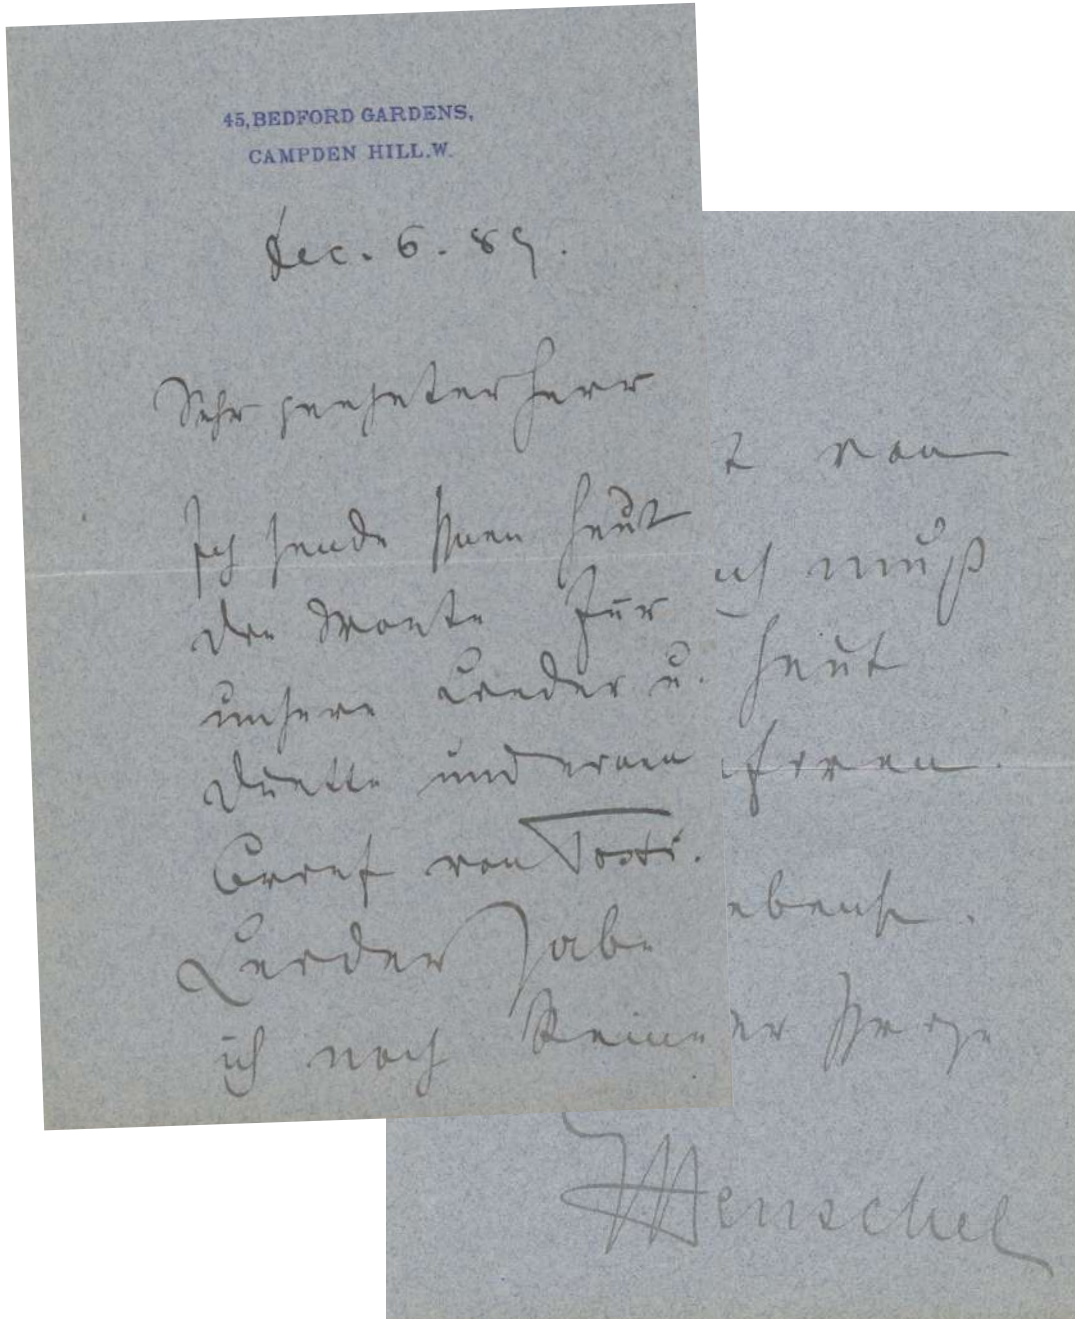 45, BEDFORD GARDENS,
CAMPDEN HILL. W.
Dec. 6. 89.
Sehr geehrter Herr
Ich sende Ihnen heut
die Worte für
unsere Lieder u.
Duette und einen
Brief von Tosti.
Leider habe
ich noch keine
t von
ich muß
heut
ebenst.
er Ihrige
Henschel